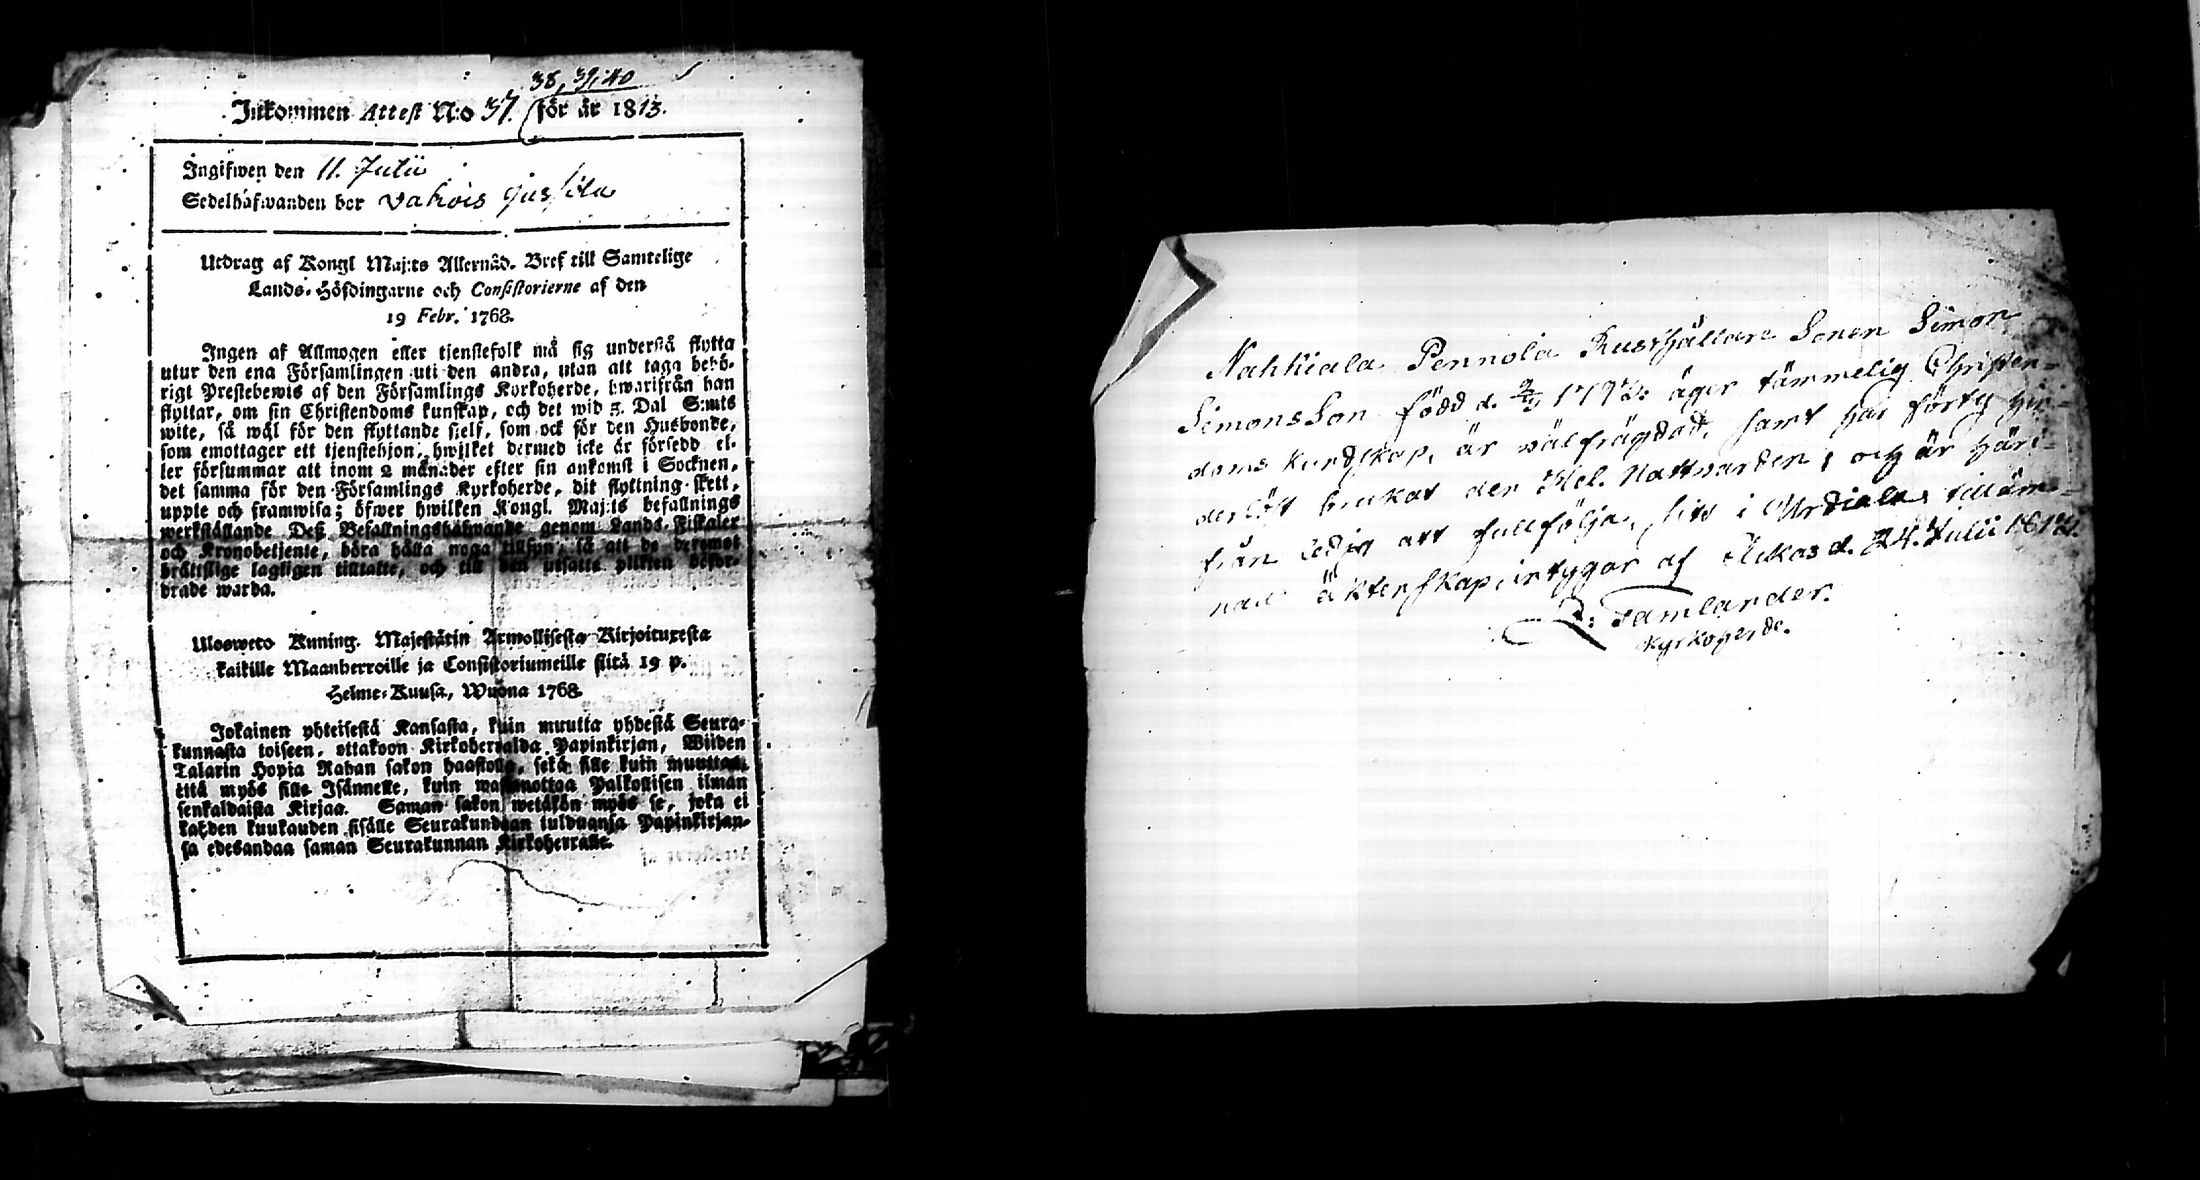 38, 39, 40
Inkommen Attest N:o 37. för år 1813.
Ingifwen den 11. Julii
Sedelhafwanden bor Vahois Jussila
Utdrag af Kongl Maj:ts Allernåd. Bref till Samtelige
Lands-Höfdingarne och Consistorierne af den
19 Febr. 1768.
Ingen af Allmogen eller tjenstefolk må sig understå flytta
utur den ena Församlingen uti den andra, utan att taga behö-
rigt Prestebewis af den Församlings Kyrkoherde, hwarifrån han
flyttar, om sin Christendoms kunskap, och det wid 5. Dal S:mts
wite, så wäl för den flyttande sielf, som ock för den Husbonde,
som emottager ett tjenstehjon, hwilket dermed icke är försedd el-
ler försummar att inom 2 månader efter sin ankomst i Socknen,
det samma för den Församlings Kyrkoherde, dit flyttning skett,
uppte och framwisa; öfwer hwilken Kongl. Maj:ts befallnings
werkställande Deß Befallningshafwande genom Lands-Fiskaler
och Kronobetjente, böra hålla noga tillsyn, så att de deremot
brättslige lagligen tilltalte, och till den utsatte plikten befor-
drade warda.
Uloswеto Kuning. Majestätin Armollisesta Kirjoituxesta
kaikille Maanherroille ja Consistoriumeille siitä 19 p.
Helme-Kuusa, Wuona 1768.
Jokainen yhteisestä Kansasta, kuin muutta yhdestä Seura-
kunnasta toiseen, ottakoon Kirkoherralda Papinkirjan, Wiiden
Talarin Hopia Rahan sakon haastolla, sekä sille kuin muuttaa,
että myös sille Isännelle, kuin wastanottaa Palkollisen ilman
senkaldaista Kirjaa. Saman sakon wetäkön myös se, joka ei
kahden kuukauden sisälle Seurakundaan tulduansa Papinkirjan-
sa edesandaa saman Seurakunnan Kirkoherralle.
Nahkiala Pennola Rusthållare Sonen Simon
Simonsson född d. 1792: äger tämmelig Christen-
doms kundskap, är välfrägdad, samt har förty hin-
derlöst brukat den Hel. Nattvarden; och är häri-
från ledig att fullfölja, sitt i Urdiala tilläm-
nade äktenskap, intygar af Akas d. 24. Julii 1812.
Z: Tamlander.
Kyrkoherde.